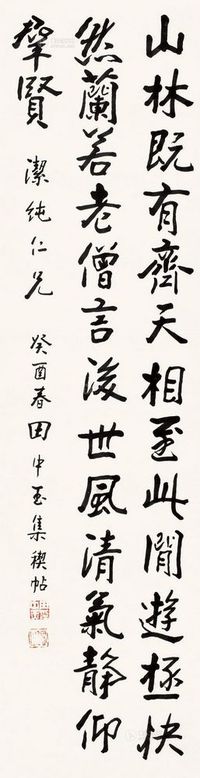 山林既有齊天相至此閒遊極快
然蘭若老僧言後世風清氣靜仰
羣賢
潔純仁兄
癸酉春田中玉集禊帖